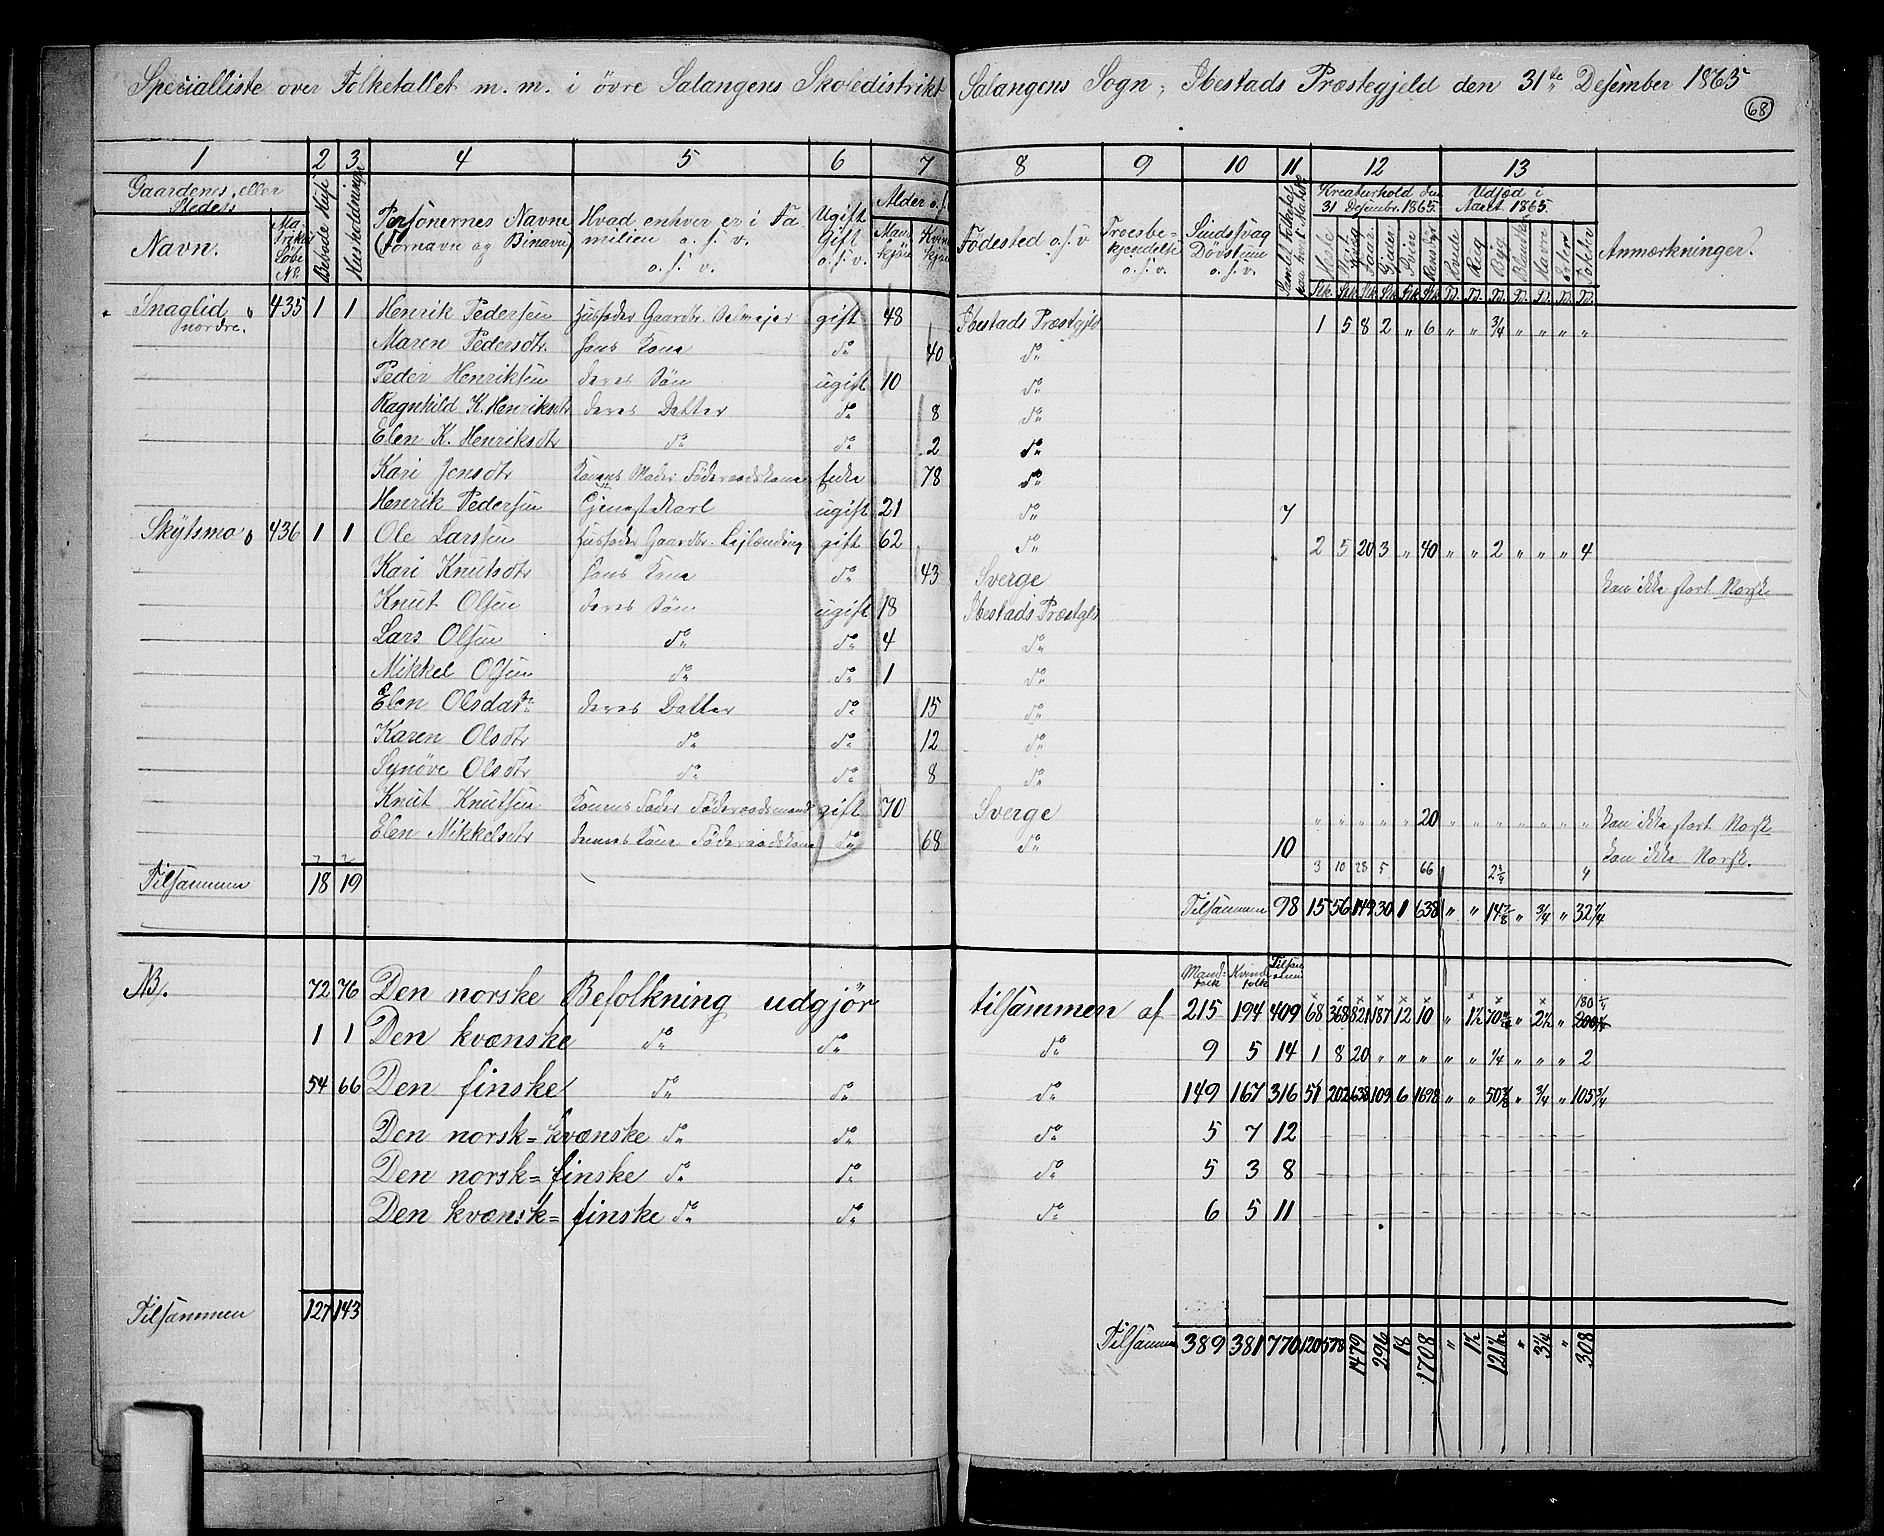 Specialliste over Folketallet m. m. i övre Salangens Skoledistrikt Salangens Sogn, Ibestads Præstegjeld den 31te Desember 1865
68
1 2 3 4 5 6 7 8 9 10 11 12 13
Gaardenes eller Stedets Navn. Matrikul Löbe No. Beboede Huse Husholdninger Personernes Navne (Fornavn og Binavn) Hvad enhver er i Familien o.s.v. o.s.v. Ugift Gift o.s.v. Alder o.s. Mandkjön Kvindkjön Födested o.s.v Troesbekjendelse o.s.v. Sindssvag Dövstum o.s.v. Kreaturhold den 31 Desembr. 1865. Heste Stort Kvæg Faar Gjeder Svin Rensdyr Udsæd i Aaret 1865. Hvede Rug Byg Blandk Havre Erter Poteter Anmærkninger.
Stk. Stk Stk Stk Stk Stk T. T. T. T. T. T. T.
Snaglid nordre. 435 1 1 Henrik Pedersen Husfader Gaardbr. Selveier gift 48 Ibestads Præstgjld 1 5 8 2 " 6 " " 3/4 " " " "
Maren Pedersdtr. Hans Kona do 40 do
Peder Henriksen deres Sön ugift 10 do
Ragnhild K. Henriksdtr deres Datter do 8 do
Elen K. Henriksdtr do do 2 do
Kari Jensdtr Konens Moder Föderaadskone Enke 78 do
Henrik Pedersen Tjenestekarl ugift 21 do 7
Skytsmo 436 1 1 Ole Larssen Husfader Gaardbr. Leilænding gift 62 do 2 5 20 3 " 40 " " 2 " " " 4
Kari Knutsdtr Hans Kona do 43 Sverge kan ikke stort Norsk
Knut Olsen deres Sön ugift 18 Ibestads Præstgjld
Lars Olsen do do 4 do
Mikkel Olsen do do 1 do
Elen Olsdatr deres Datter do 15 do
Karen Olsdtr do do 12 do
Synöve Olsdtr do do 8 do
Knut Knutsen Konens Fader Föderaadsmand gift 70 Sverge " " " " " 20 " " " " " " " kan ikke stort Norsk
Elen Mikkelsdtr hannes Kone Föderaadskone do 68 do 10 kan ikke Norsk.
2 2 3 10 28 5 66 2 3/4 4
Tilsammen 18 19 Tilsammen 98 15 56 149 30 1 638 " " 14 7/8 " 3/4 " 32 1/4
Mandfolk Kvindfolk Tilsammen
NB. 72 76 Den norske Befolkning udgjör tilsammen af 215 194 409 68 368 821 187 12 10 " 1 1/2 70 " 2 1/2 " 180 200
1 1 Den kvænske do do do 9 5 14 1 8 20 " " " " " 1/4 " " " 2
54 66 Den finske do do do 149 167 316 51 202 638 109 6 1698 " " 50 7/8 " 3/4 " 105 3/4
Den norsk=kvænske do do do 5 7 12
Den norsk=finske do do do 5 3 8
Den kvænsk=finske do do do 6 5 11
Tilsammen 127 143
Tilsammen 389 381 770 120 578 1479 296 18 1708 " 1 1/2 121 1/2 " 3 1/4 " 308